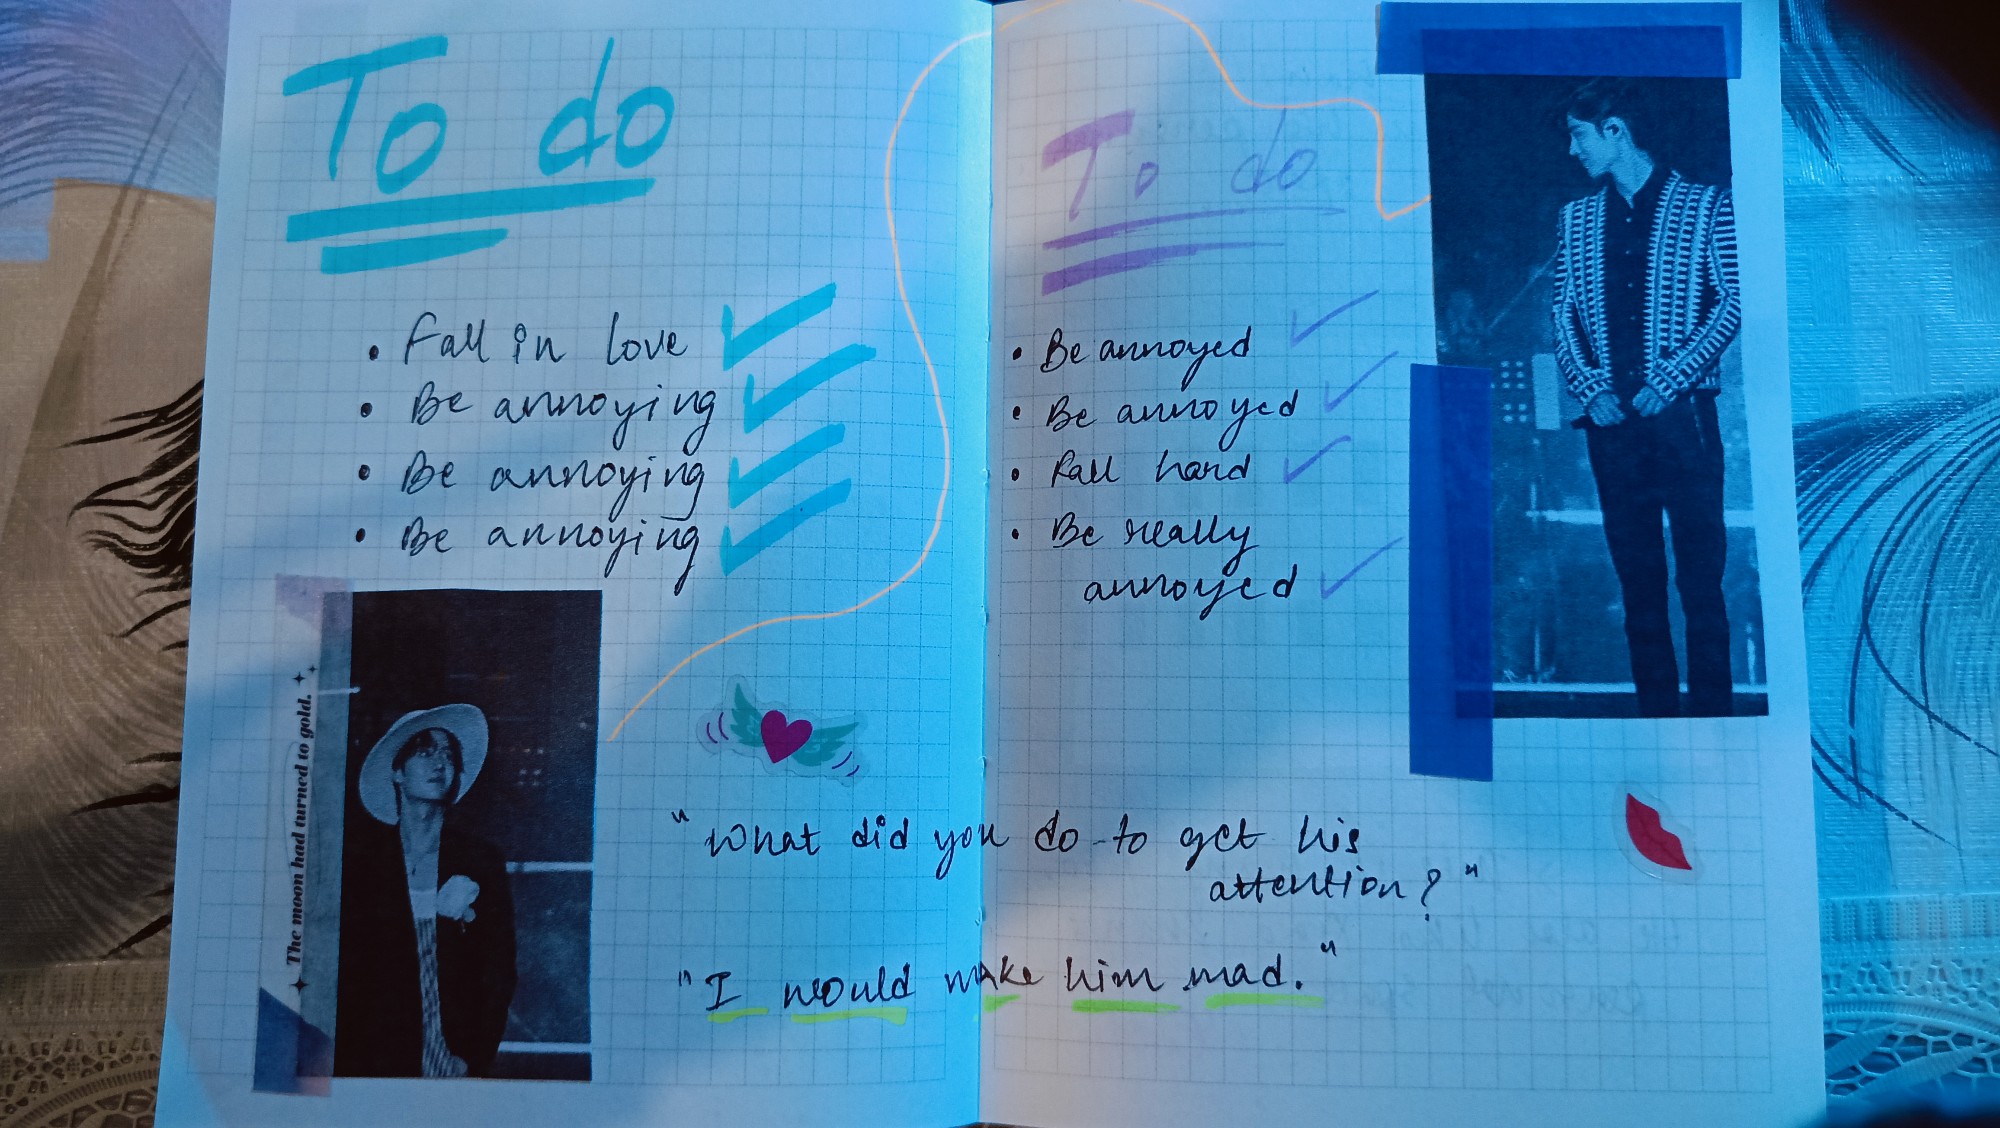 To do
• Fall in love
• Be annoying
• Be annoying
• Be annoying
The moon had turned to gold.
To do
• Be annoyed
• Be annoyed
• Fall hard
• Be really
annoyed
"What did you do to get his
attention?"
"I would make him mad."